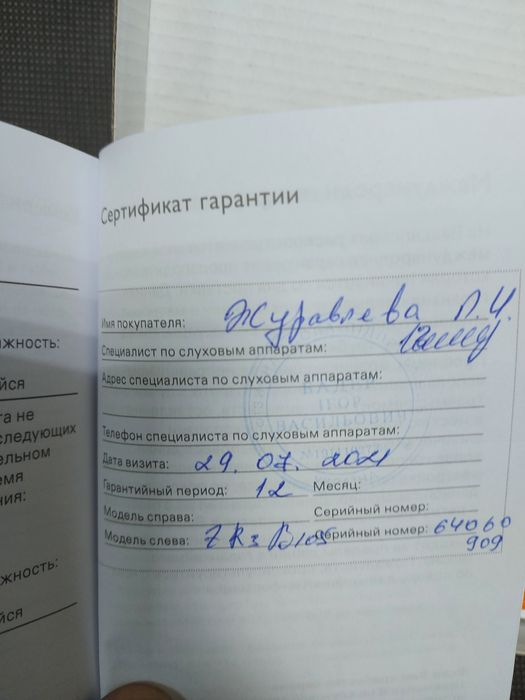 Сертификат гарантии
Имя покупателя: Журавлева Л.И.
Специалист по слуховым аппаратам:
Адрес специалиста по слуховым аппаратам:
ИГОР
ВАСИЛЬОВИЧ
Телефон специалиста по слуховым аппаратам:
Дата визита: 29.07.2021
Гарантийный период: 12 Месяц:
Модель справа: Серийный номер:
Модель слева: Серийный номер: 64060
909
жность:
йся
та не
следующих
ельном
емя
ния:
жность:
йся